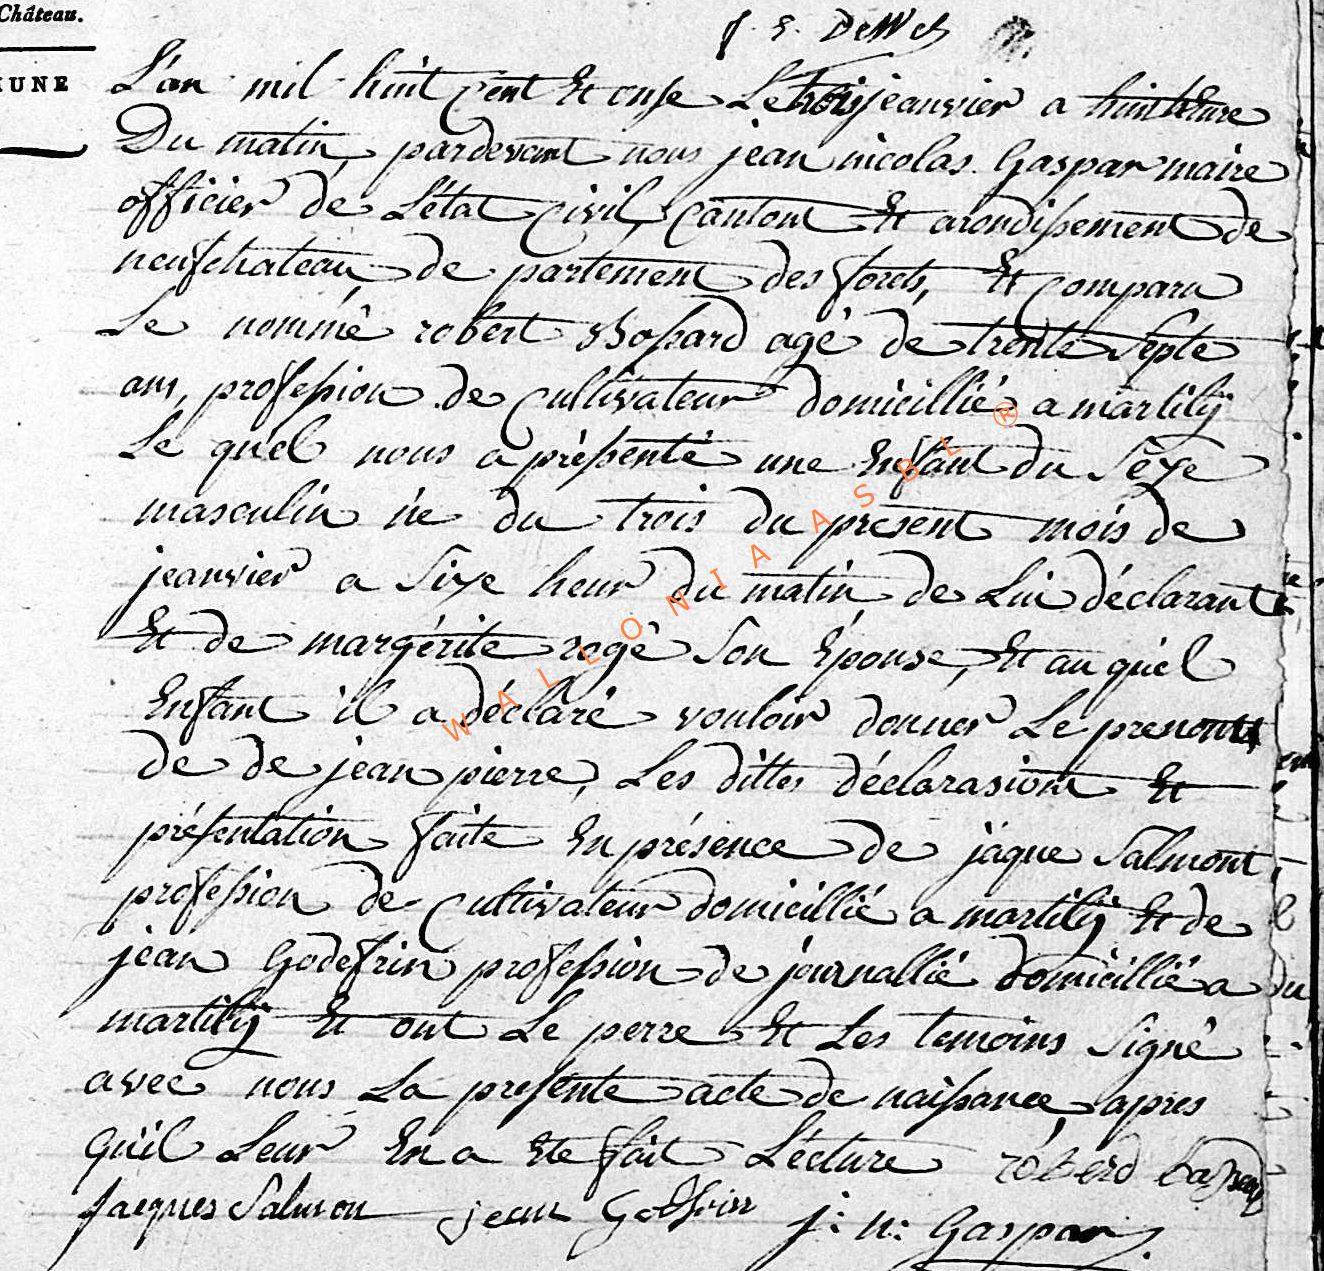 Château.
J. E. DeWet
MUNE
L'an mil huit cent Et onse Le trois jeanvier a huit heure
Du matin, pardevant nous jean nicolas Gaspar maire
officier de L'état civil, canton Et arondissement de
neufchateau, de partement des forets, Et compara
Le nommé robert Bossard agé de trente septe
ans, profession de cultivateur domicillié a martilÿ
Le quel nous a présenté une Enfant du sexe
masculin né du trois du present mois de
jeanvier a sixe heur du matin de Lui déclarant
Et de margérite rogé son Épouse, Et au quel
Enfant il a déclaré vouloir donner Le prenom
de de jean pierre, Les dittes déclarasiont Et
présentation faite En présence de jâque Salmont,
profession de cultivateur domicillié a martilÿ Et de
jean Godefrin profession de journallié domicillié a
martilÿ Et ont Le perre Et Les temoins signé
avec nous La presente acte de naissance apres
qu'il Leur En a Ete fait L'écture robert
Jacques Salmon jean Godfrin j: n: Gaspar
WALLONIA ASBL ®